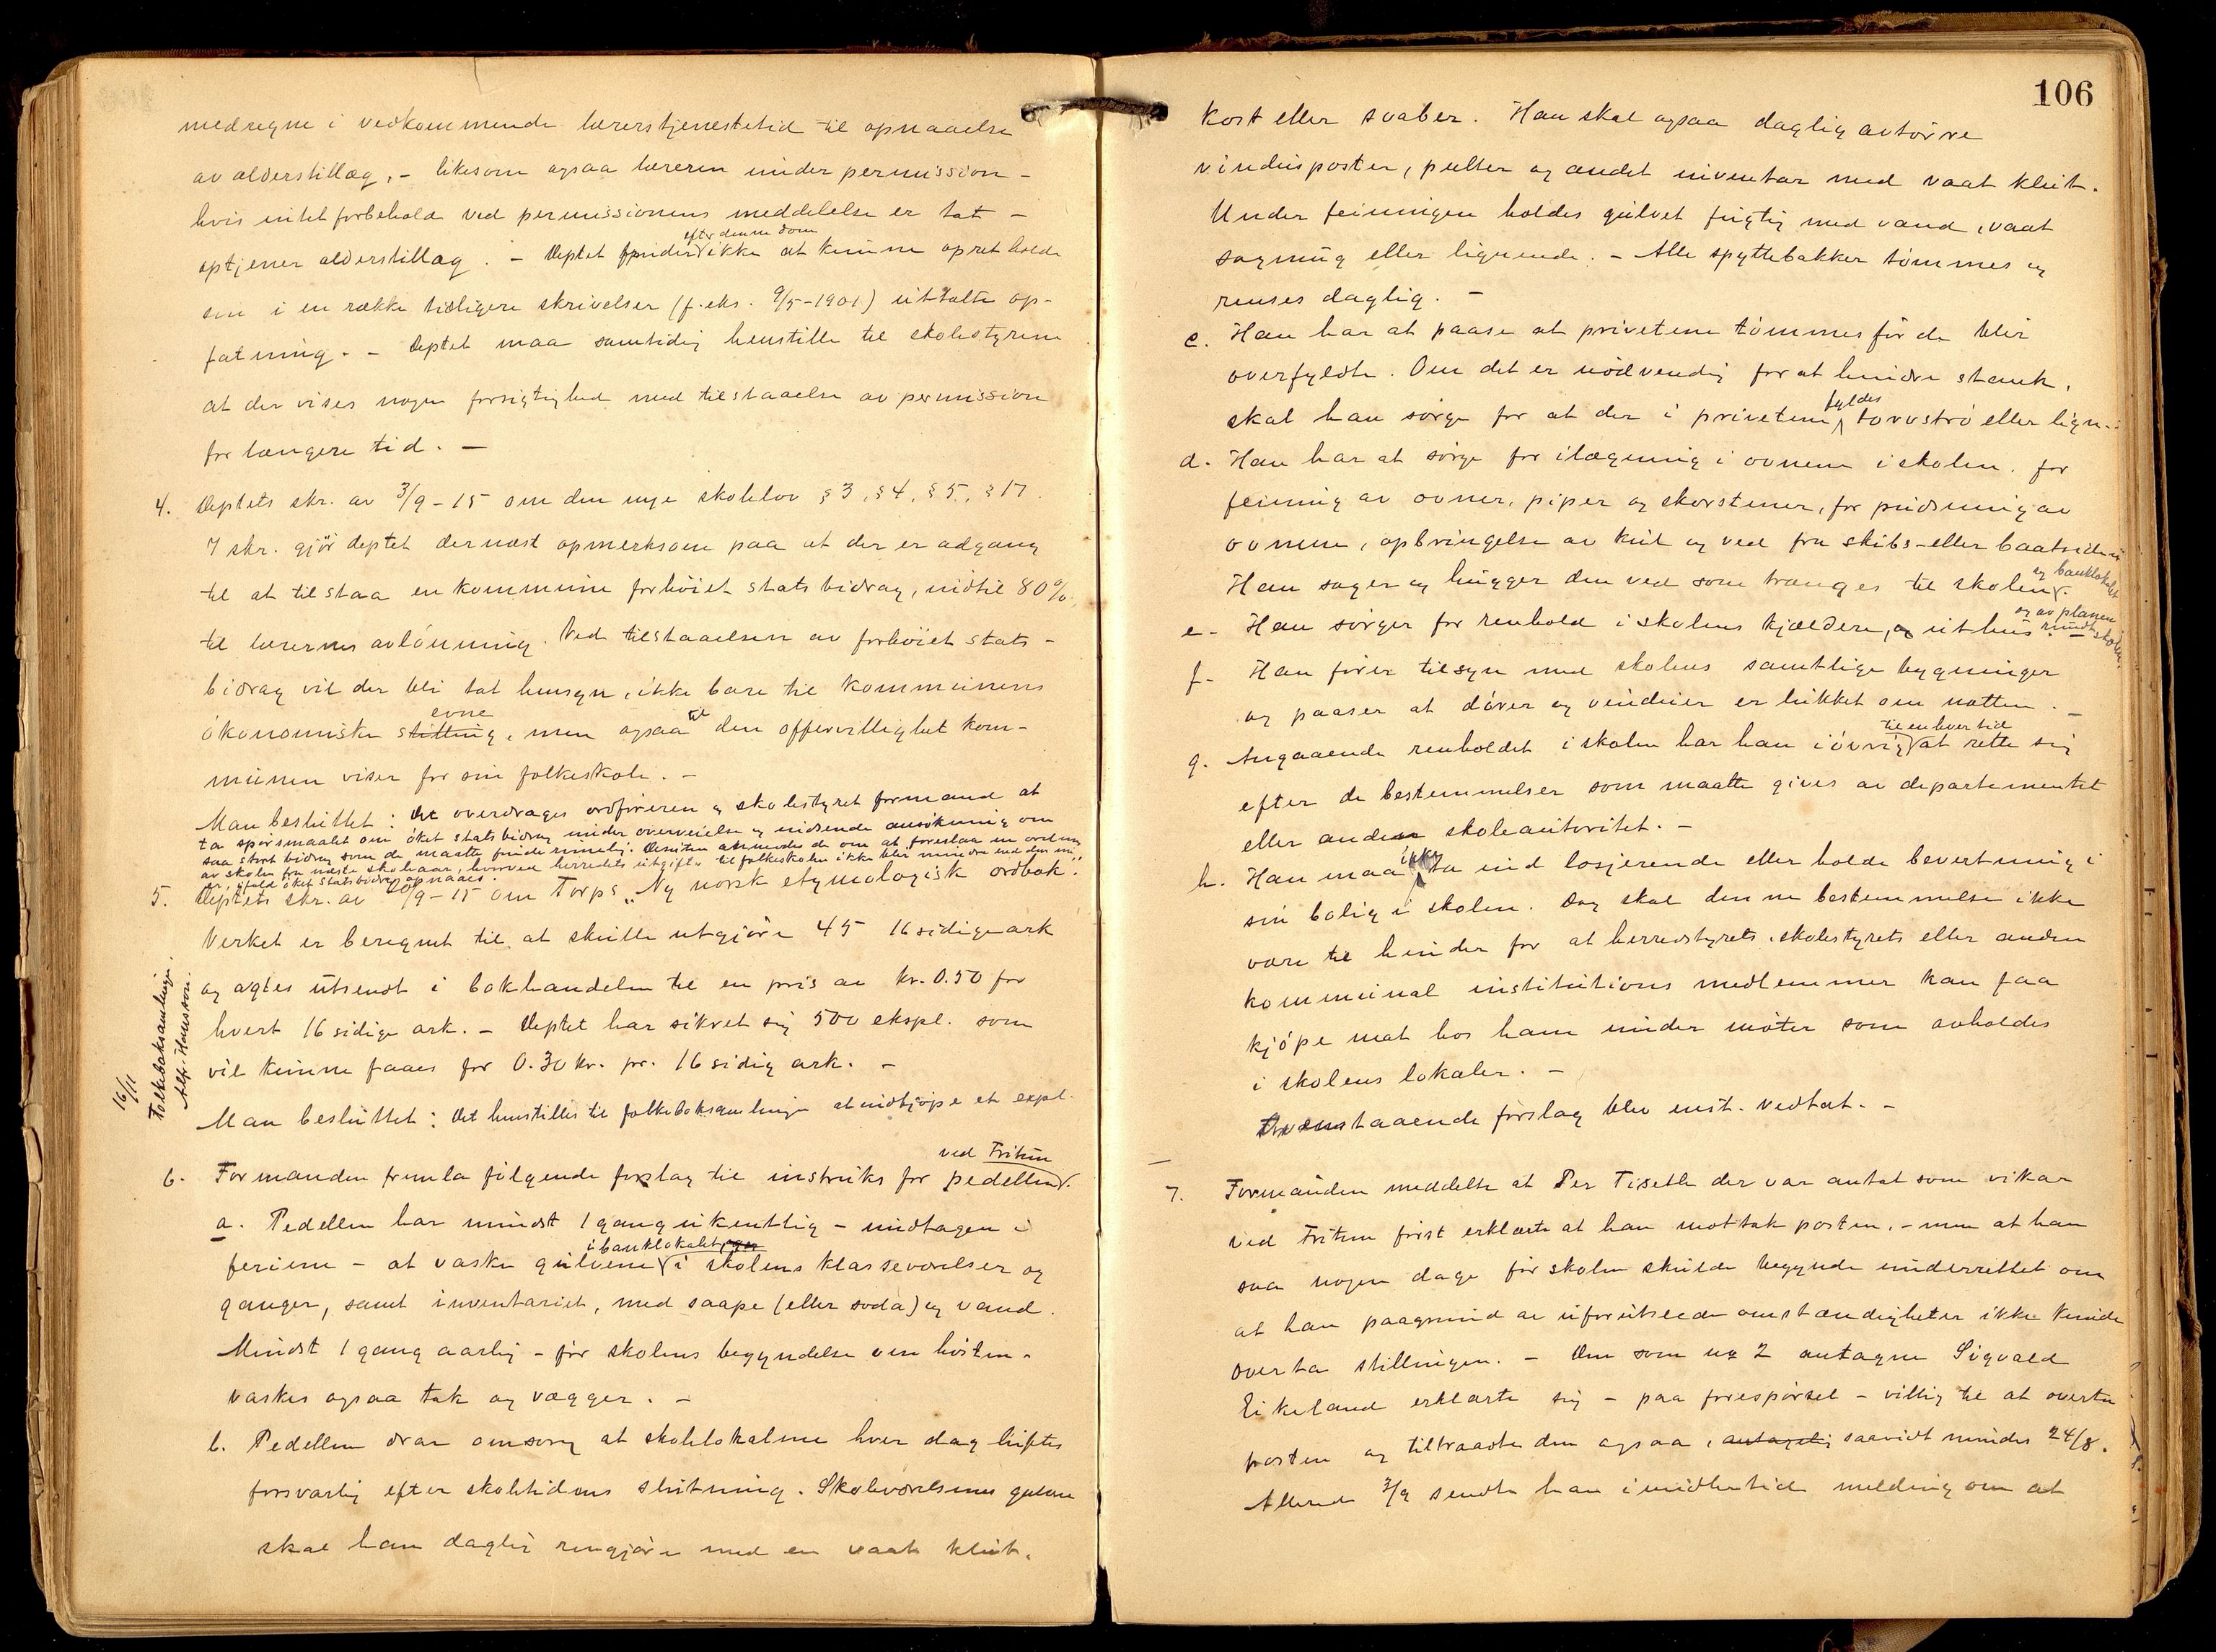 medregne i vedkommende lærerstjenestetid til opnaaelse
av alderstillæg, - likesom ogsaa læreren under permission -
hvis intet forbehold ved permissionens meddelelse er tat -
efter denne dom
optjener alderstillæg. - Deptet finder ikke at kunne opretholde
sin i en række tidligere skrivelser (f.eks. 9/5-1901) uttalte op-
fatning. - Deptet maa samtidig henstille til skolestyrene
at der vises nogen forsigtighed med tilstaaelse av permission
for længere tid. -
4. Deptets skr. av 3/9-15 om den nye skolelov § 3, § 4, § 5, § 17.
I skr. gjør deptet dernæst opmerksom paa at der er adgang
til at tilstaa en kommune forhøiet statsbidrag, indtil 80%,
til lærernes avlønning. Ved tilstaaelsen av forhøiet stats-
bidrag vil der bli tat hensyn, ikke bare til kommunens
evne
økonomiske stilling, men ogsaa til den offervillighet kom-
munen viser for sin folkeskole. -
Man besluttet: Det overdrages ordføreren og skolestyret formand at
ta spørsmaalet om øket statsbidrag under overveielse og indsende ansøkning om
saa stort bidrag som de maatte finde rimelig. Desuten anmodes de om at foreslaa en ordning
av skolen fra næste skoleaar, hvorved herredets utgifter til folkeskolen ikke blir mindre end den nu
er, ifald øket statsbidrag opnaaes.
5. Deptets skr. av 20/9-15 om Torps „Ny norsk etymologisk ordbok".
Verket er beregnet til at skulle utgjøre 45 16 sidige ark
og agtes utsendt i bokhandelen til en pris av kr. 0.50 for
hvert 16 sidige ark. - Deptet har sikret sig 500 ekspl. som
vil kunne faaes for 0.30 kr. pr. 16 sidig ark. -
16/11
Folkeboksamlingen.
Alf. Hansson.
Man besluttet: Det henstilles til folkeboksamlingen at indkjøpe et expl.
ved Fritun
6. Formanden fremla følgende forslag til instruks for pedellen.
a. Pedellen har mindst 1 gang ukentlig - undtagen i
i banklokalet, og
ferierne - at vaske gulvene i skolens klasseværelser og
ganger, samt inventariet, med saape (eller soda) og vand.
Mindst 1 gang aarlig - før skolens begyndelse om høsten -
vaskes ogsaa tak og vægger. -
b. Pedellen drar omsorg at skolelokalene hver dag luftes
forsvarlig efter skoletidens slutning. Skoleværelsernes gulve
skal han daglig rengjøre med en vaat klut,
106
kost eller svaber. Han skal ogsaa daglig avtørre
vindusposter, pulter og andet inventar med vaat klut.
Under feiningen holdes gulvet fugtig med vand, vaat
sagmug eller lignende. - Alle spyttebakker tømmes og
renses daglig. -
c. Han har at paase at privetene tømmes før de blir
overfyldte. Om det er nødvendig for at hindre stank,
fyldes
skal han sørge for at der i privetene torvstrø eller lign.
d. Han har at sørge for ilægning i ovnene i skolen, for
feining av ovner, piper og skorstener, for pudsning av
ovnene, opbringelse av kul og ved fra skibs- eller baatsiden
og banklokalet
Han sager og hugger den ved som trænges til skolen.
og av planen
e. Han sørger for renhold i skolens kjældere, og uthus rundt skolen.
f. Han fører tilsyn med skolens samtlige bygninger
og paaser at dører og vinduer er lukket om natten. -
til enhver tid
g. Angaaende renholdet i skolen har han iøvrig at rette sig
efter de bestemmelser som maatte gives av departementet
eller anden skoleautoritet. -
ikke
h. Han maa ta ind losjerende eller holde bevertning i
sin bolig i skolen. Dog skal denne bestemmelse ikke
være til hinder for at herredstyrets, skolestyrets eller anden
kommunal institutions medlemmer kan faa
kjøpe mat hos ham under møter som avholdes
i skolens lokaler. -
Ovenstaaende forslag blev enst. vedtat. -
7. Formanden meddelte at Per Tisetle der var antat som vikar
ved Fritun først erklærte at han mottok posten, - men at han
saa nogen dage før skolen skulde begynde underrettet om
at han paagrund av uforutseede omstændigheter ikke kunde
overta stillingen. - Den som nr 2 antagne Sigvald
Eikeland erklærte sig - paa forespørsel - villig til at overta
posten og tiltraadte den ogsaa, antagelig saavidt mindes 24/8.
Allerede 3/9 sendte han imidlertid melding om at